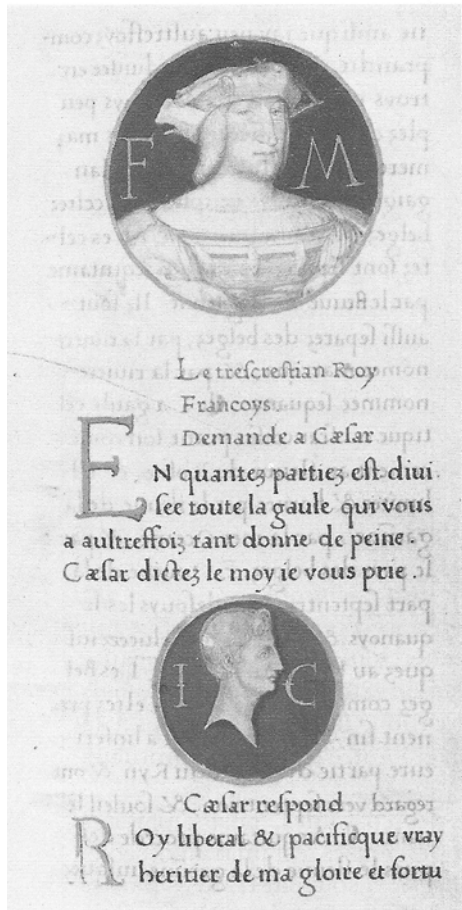 F M
Le trescrestian Roy
Francoys.
Demande a Cæsar
EN quantez partiez est divi
see toute la gaule qui vous
a aultreffoiz tant donne de peine.
Cæsar dictez le moy ie vous prie.
I C
Cæsar respond
ROy liberal & pacificque vray
heritier de ma gloire et fortu